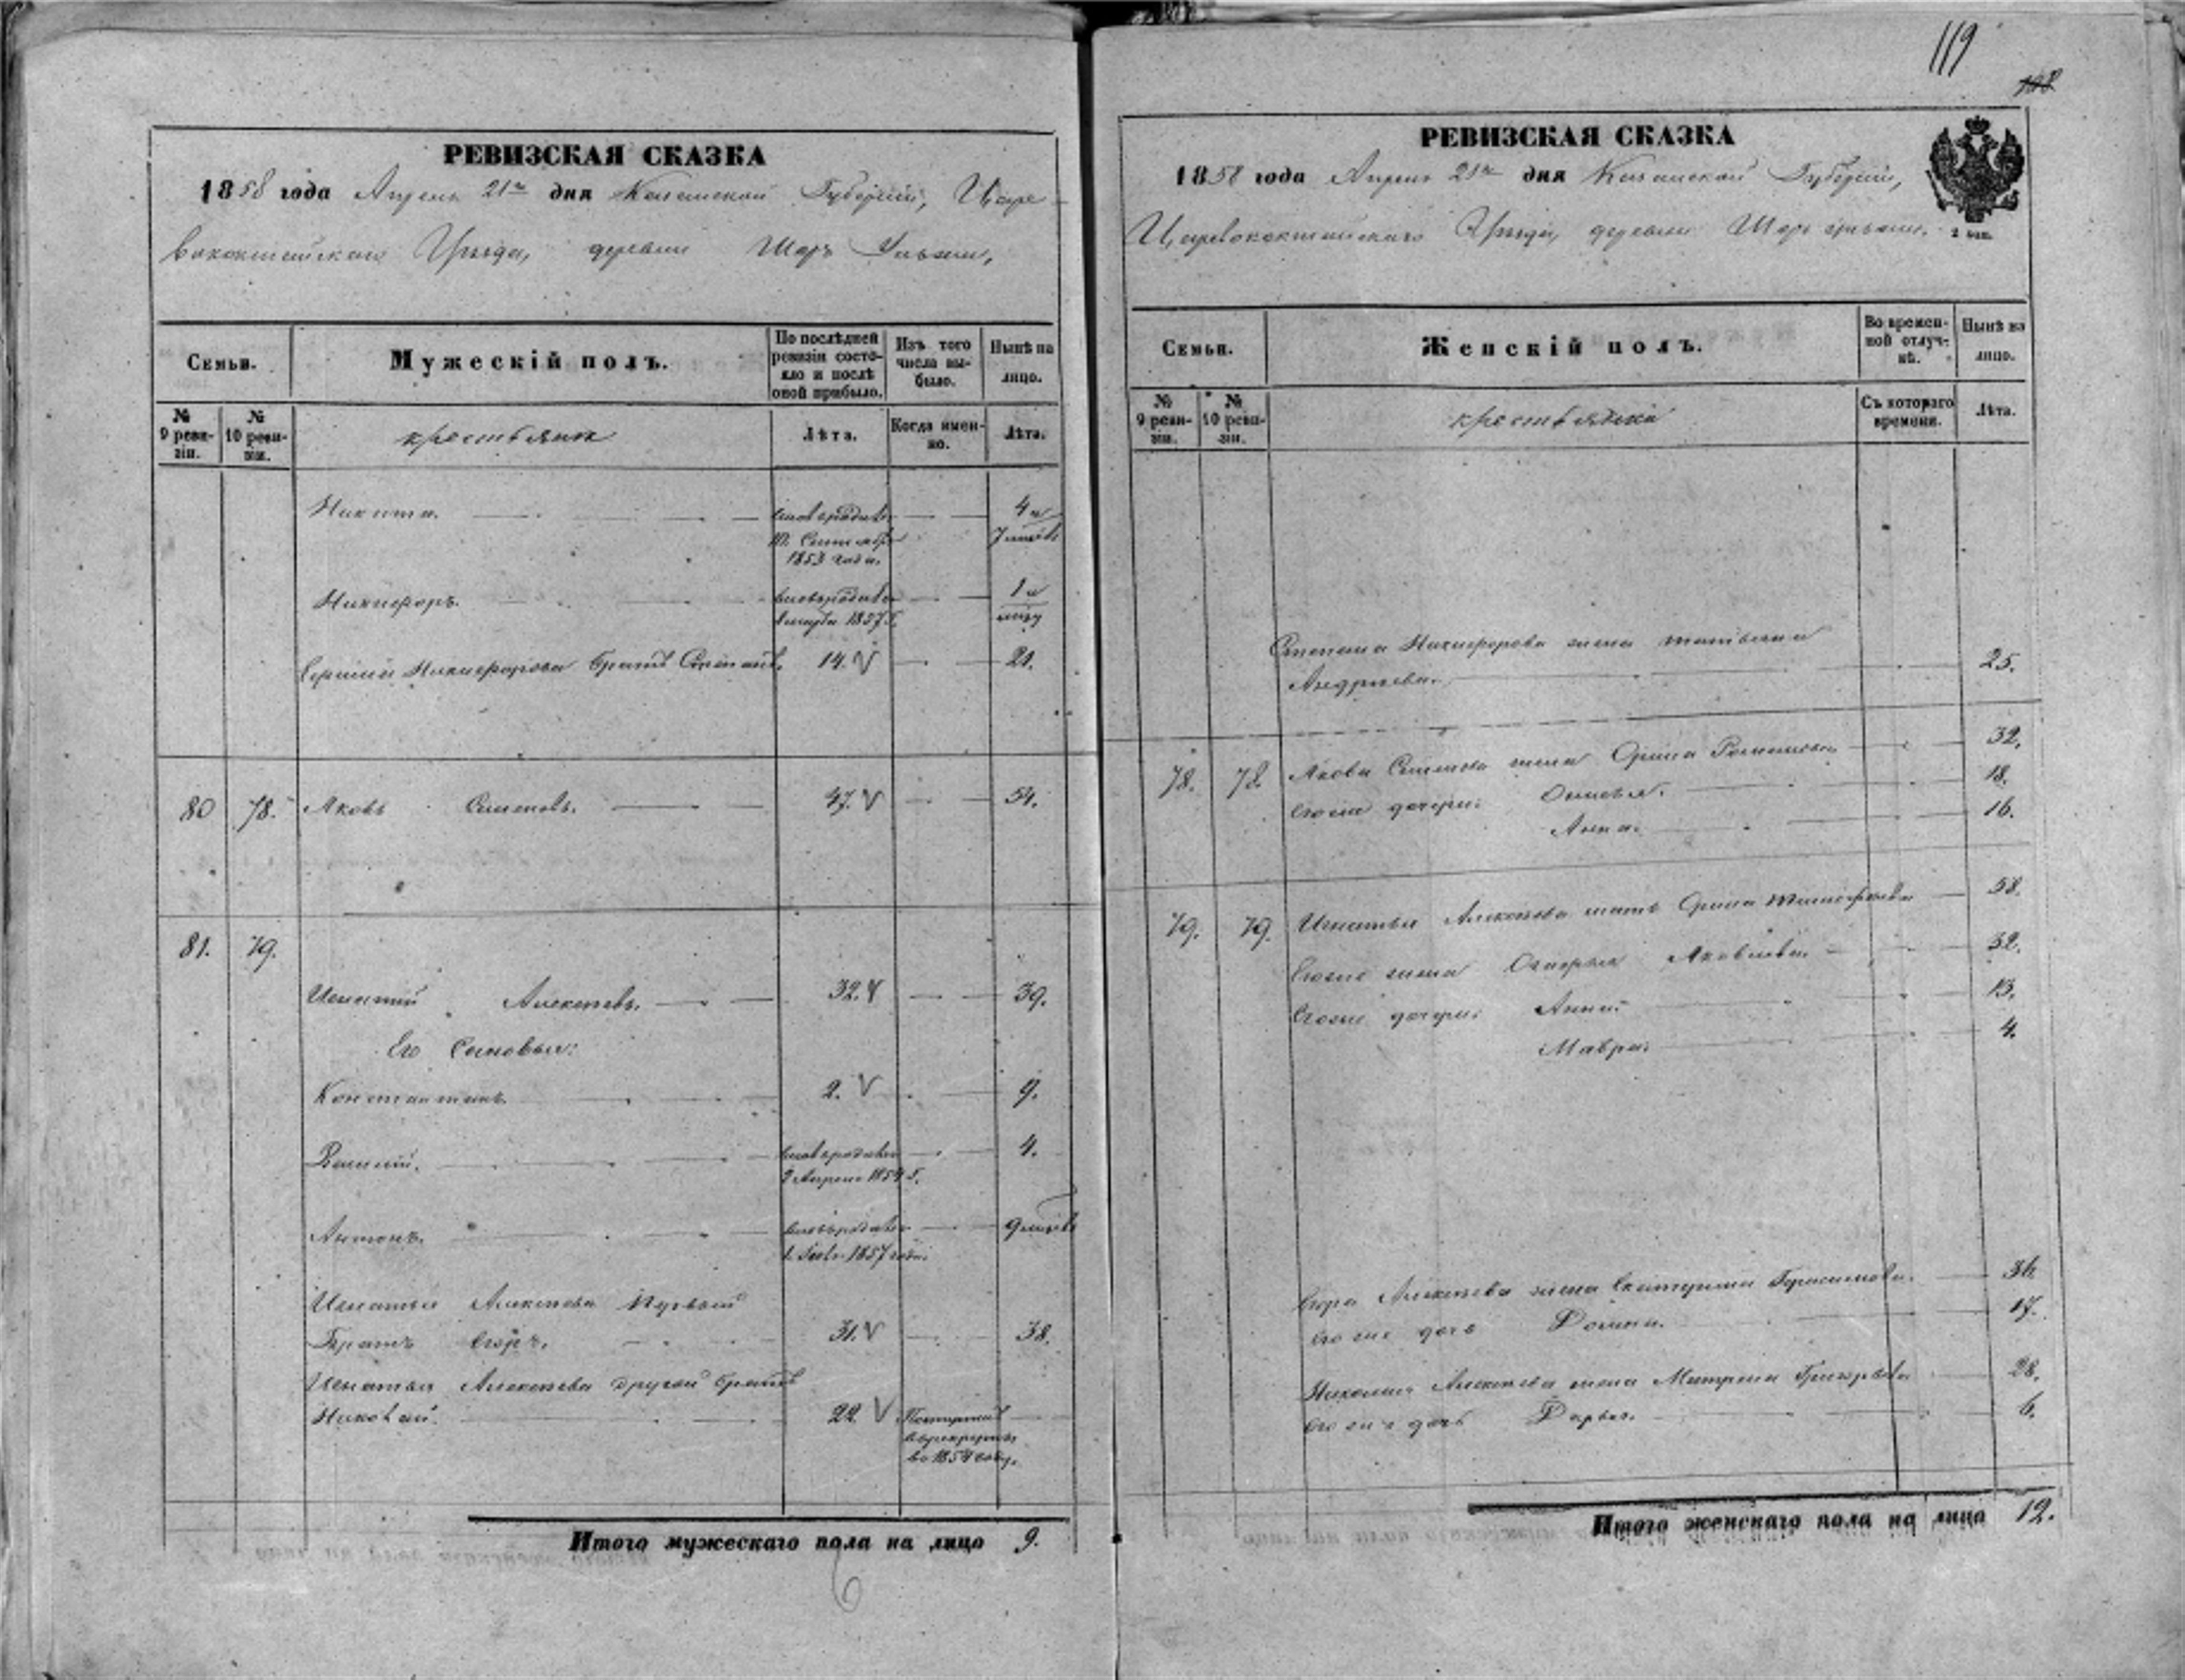 119
108
РЕВИЗСКАЯ СКАЗКА
1858 года Апреля 21го дня Казанской Губерніи, Царе-
вококшайскаго Уѣзда, деревни Шоръ Уньжи,
Семьи.
Мужескій полъ.
По послѣдней ревизіи состо-
яло и послѣ
оной прибыло.
Изъ того
числа вы-
было.
Нынѣ на
лицо.
№
9 реви-
зіи.
№
10 реви-
зіи.
крестьяне
Лѣта.
Когда имен-
но.
Лѣта.
Никита.
вновьродивш
10. Сентября
1853 года.
4 и
7 мѣсяц
Никифоръ.
вновьродивш
марта 1857 г.
1 и
мѣсяц
Сергѣй Никифорова братъ Степанъ.
14.
21.
80
78.
Яковъ Семеновъ.
47.
54.
81.
79.
Игнатій Алексѣевъ.
32.
39.
Его Сыновья:
Константинъ
2.
9.
Василій.
вновьродивш
2 Апреля 1854 г.
4.
Антонъ.
вновьродивш
1857 года.
9 мѣсяц
Игнатья Алексѣева Первый
Братъ Егоръ.
31.
38.
Игнатья Алексѣева другой братъ
Николай.
22
Поступилъ
в рекруты
въ 1854 году.
Итого мужескаго пола на лицо 9.
6
РЕВИЗСКАЯ СКАЗКА
1858 года Апреля 21го дня Казанской Губерніи,
Царевококшайскаго Уѣзда, деревни Шоръ Уньжи.
Семьи.
Женскій полъ.
Во времен-
ной отлуч-
кѣ.
Нынѣ на
лицо.
№
9 реви-
зіи.
№
10 реви-
зіи.
крестьянки
Съ котораго
времени.
Лѣта.
Степана Никифорова жена Татьяна
Андреева.
25.
78.
78.
Якова Семенова жена Орина Романова
32.
Егоже дочери:
18.
Анна.
16.
79.
79.
Игнатья Алексѣева мать Орина Тимофеева
58.
Егоже жена Яковлева
32.
Егоже дочери: Анна
13.
Мавра.
4.
Егора Алексѣева жена Екатерина Герасимова.
36
Его же дочь Домна.
17.
Николая Алексѣева жена Матрена Григорьева
28.
Его же дочь Дарья.
6.
Итого женскаго пола на лицо 12.